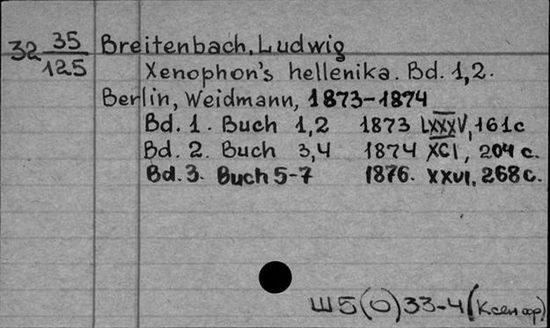 32 35/125 Breitenbach, Ludwig
Xenophon's hellenika. Bd. 1,2.
Berlin, Weidmann, 1873-1874
Bd. 1. Buch 1,2 1873 LXXXV, 161c
Bd. 2. Buch 3,4 1874 XCI, 204 c.
Bd. 3. Buch 5-7 1876. XXVI, 268 c.
Ш5(0)33-4(Ксеноф)